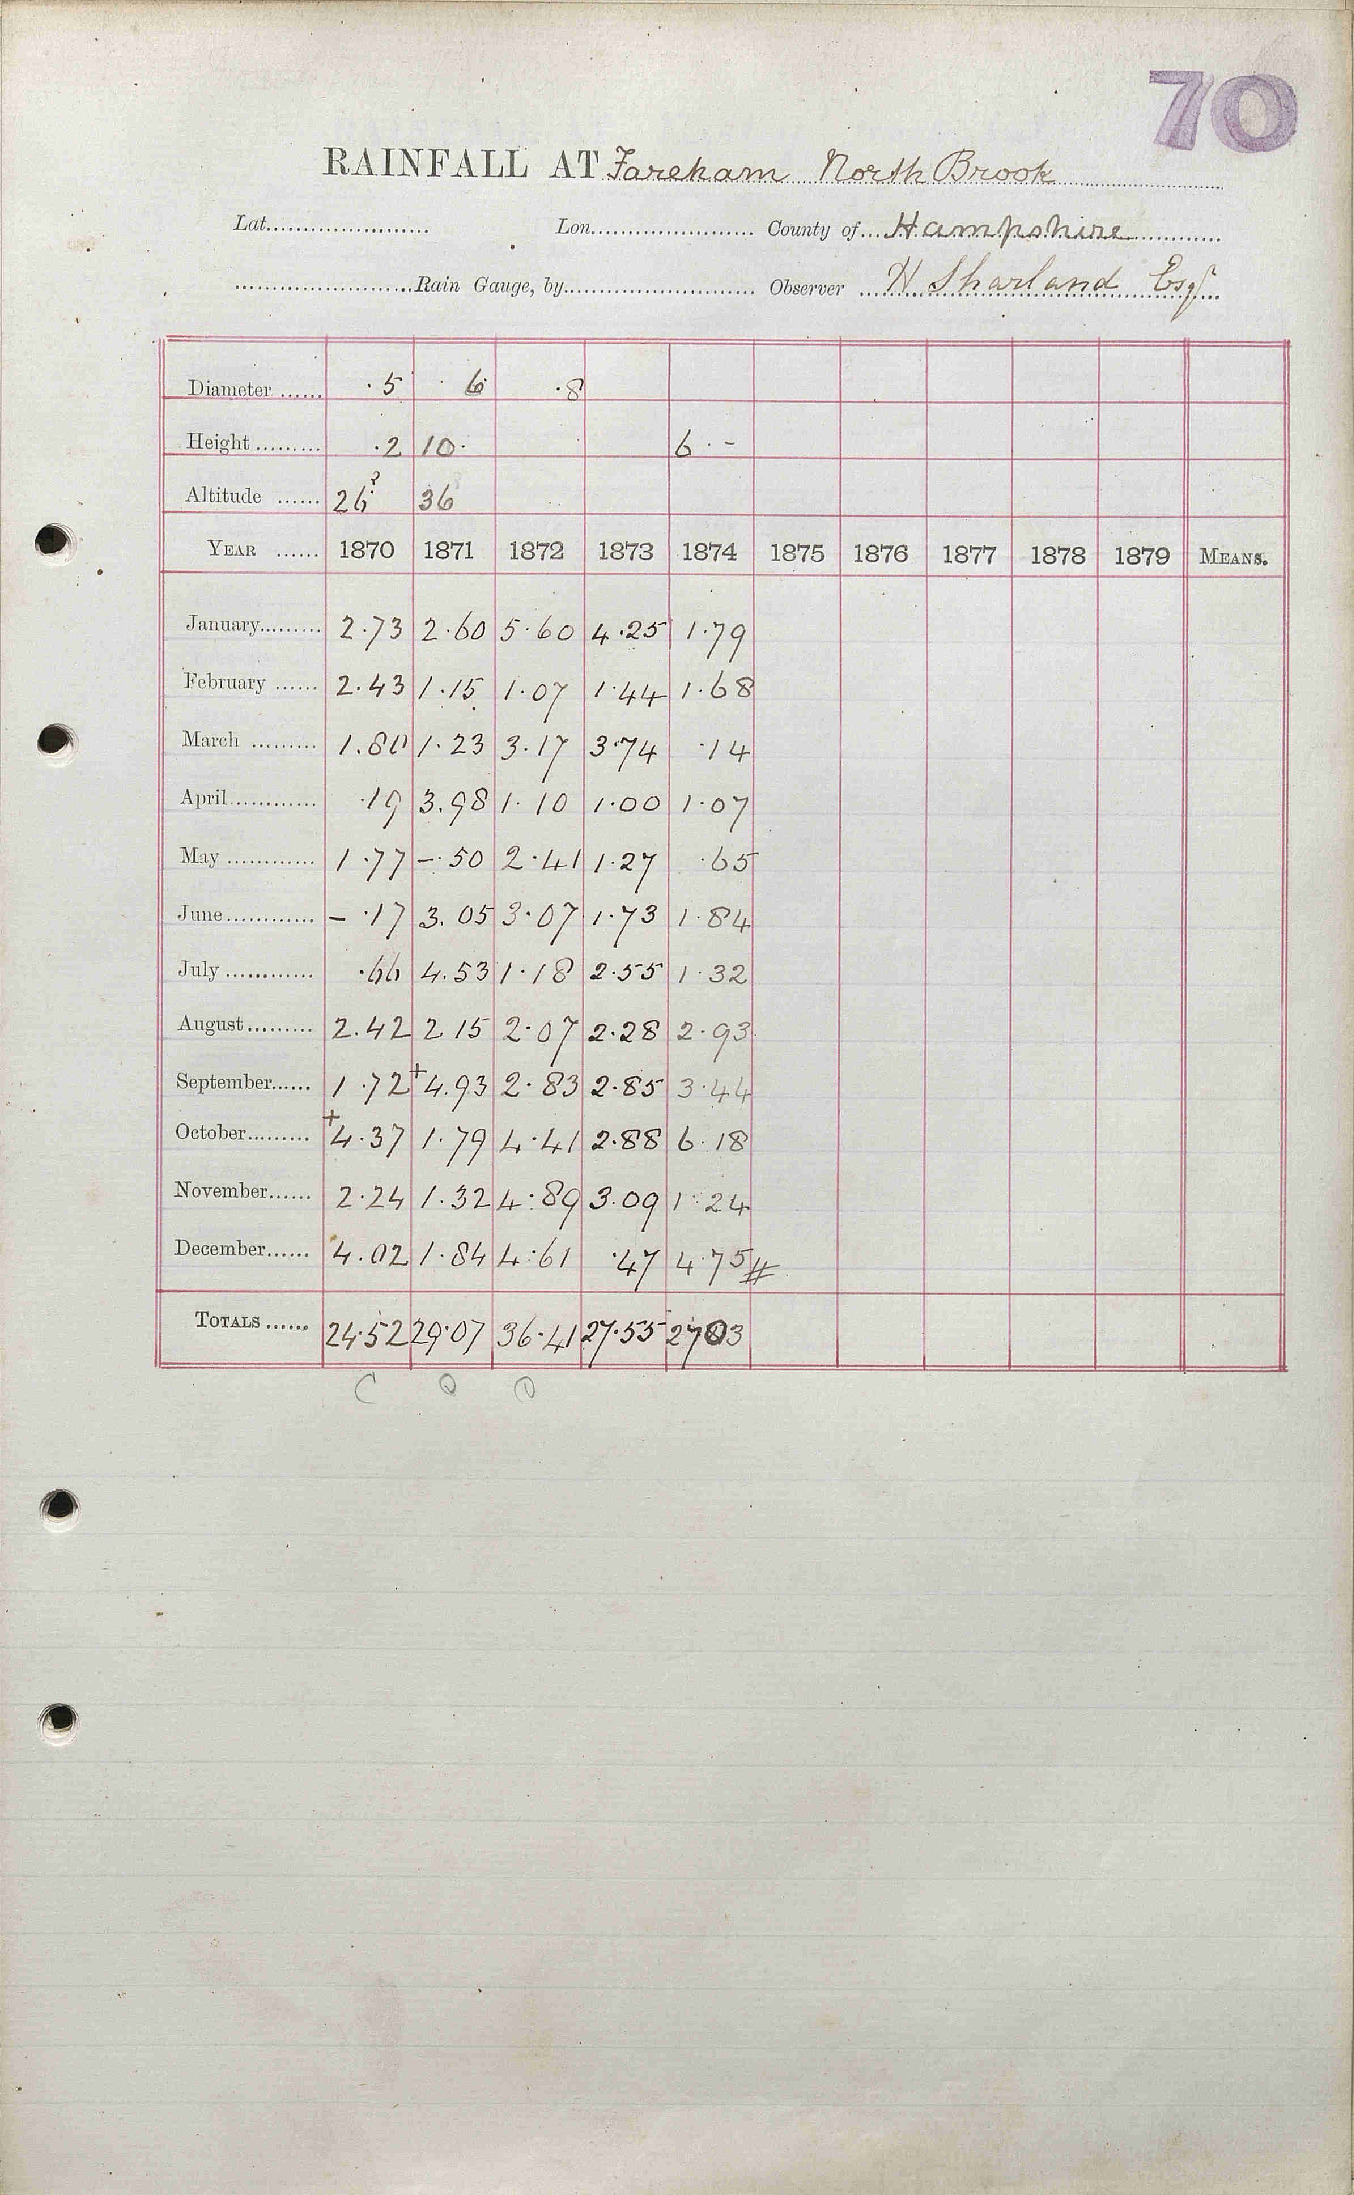 70
RAINFALL AT Fareham North Brook
Lat. Lon. County of Hampshire
Rain Gauge, by Observer H Sharland Esq
Diameter ...... .5 6 .8
Height ......... .2 10. 6 . -
Altitude ...... 26? 36
YEAR ...... 1870 1871 1872 1873 1874 1875 1876 1877 1878 1879 MEANS.
January......... 2.73 2.60 5.60 4.25 1.79
February ...... 2.43 1.15 1.07 1.44 1.68
March ......... 1.80 1.23 3.17 3.74 .14
April............ .19 3.98 1.10 1.00 1.07
May ............ 1.77 -.50 2.41 1.27 .65
June............ - .17 3.05 3.07 1.73 1.84
July ............ .66 4.53 1.18 2.55 1.32
August......... 2.42 2 15 2.07 2.28 2.93
September...... 1.72 +4.93 2.83 2.85 3.44
October......... +4.37 1.79 4.41 2.88 6.18
November...... 2.24 1.32 4.89 3.09 1.24
December...... 4.02 1.84 4.61 .47 4.75 #
TOTALS ...... 24.52 29.07 36.41 27.55 27.03